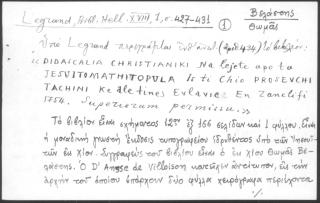 Legrand, Bibl. Hell. XVIII, 1, σ. 427-431
①
Βελάσσης
Θωμᾶς
Ὑπὸ Legrand περιγράφεται (ἀριθ. 434) τὸ βιβλίον:
"DIDASCALIA CHRISTIANIKI Na lejete apo ta
JESUITOMATHITOPULA Is ti Chio PROSEVCHI
TACHINI Ke aletines Evlavies En
1754. Superiorum permissu."
Τὸ βιβλίον εἶναι σχήματος 12ου ἐξ 166 σελίδων καὶ 1 φύλλου. εἶναι
ἡ μοναδικὴ γνωστὴ ἔκδοσις τυπογραφείου ἱδρυθέντος ὑπὸ τῶν Ἰησουϊ-
τῶν ἐν Χίῳ. Συγγραφεὺς τοῦ βιβλίου εἶναι ὁ ἐκ Χίου Θωμᾶς Βε-
λάσσης. Ὁ D'Ansse de Villoison κατεῖχεν ἀντίτυπον, εἰς τὴν
ἀρχὴν τοῦ ὁποίου ὑπάρχουν δύο φύλλα χειρόγραφα περιέχοντα
./.